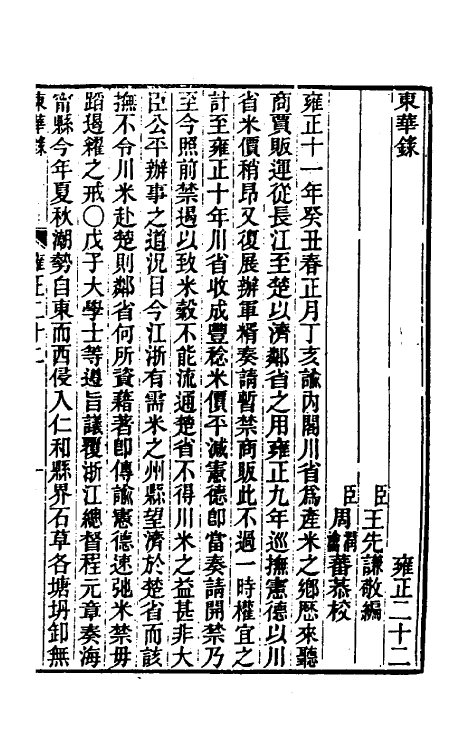 東華錄 雍正二十二
臣王先謙敬編
臣周潤蕃周瀹蕃恭校
雍正十一年癸丑春正月丁亥諭內閣川省為產米之鄉歷來聽
商賈販運從長江至楚以濟鄰省之用雍正九年巡撫憲德以川
省米價稍昂又復展辦軍糈奏請暫禁商販此不過一時權宜之
計至雍正十年川省收成豐稔米價平減憲德卽當奏請開禁乃
至今照前禁遏以致米穀不能流通楚省不得川米之益甚非大
臣公平辦事之道況目今江浙有需米之州縣望濟於楚省而該
撫不令川米赴楚則鄰省何所資藉著卽傳諭憲德速弛米禁毋
蹈遏糴之戒〇戊子大學士等遵旨議覆浙江總督程元章奏海
甯縣今年夏秋湖勢自東而西侵入仁和縣界石草各塘坍卸無
東華錄 雍正二十二 一